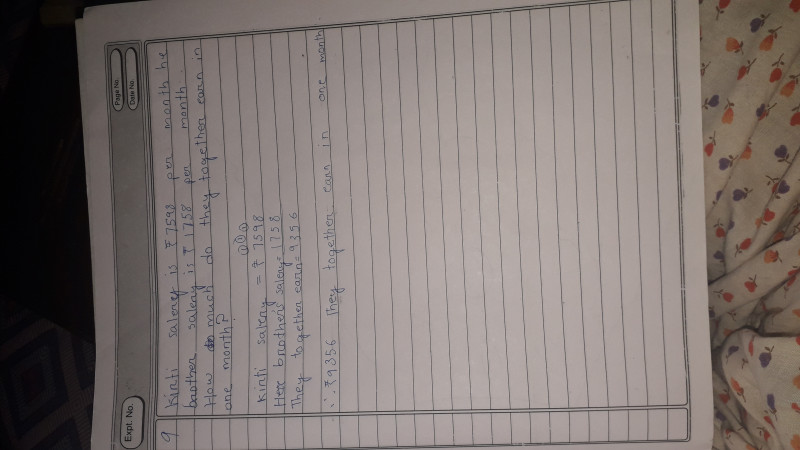 Page No.
Date No.
Expt. No.
9 Kirti salery is ₹ 7598 per month he
brother salery is ₹ 1758 per month.
How much do they together earn in
one month?
① ① ①
Kirti salery = ₹ 7598
Here brother's salery = 1758
They together earn = 9356
∴ ₹9356 they together earn in one month